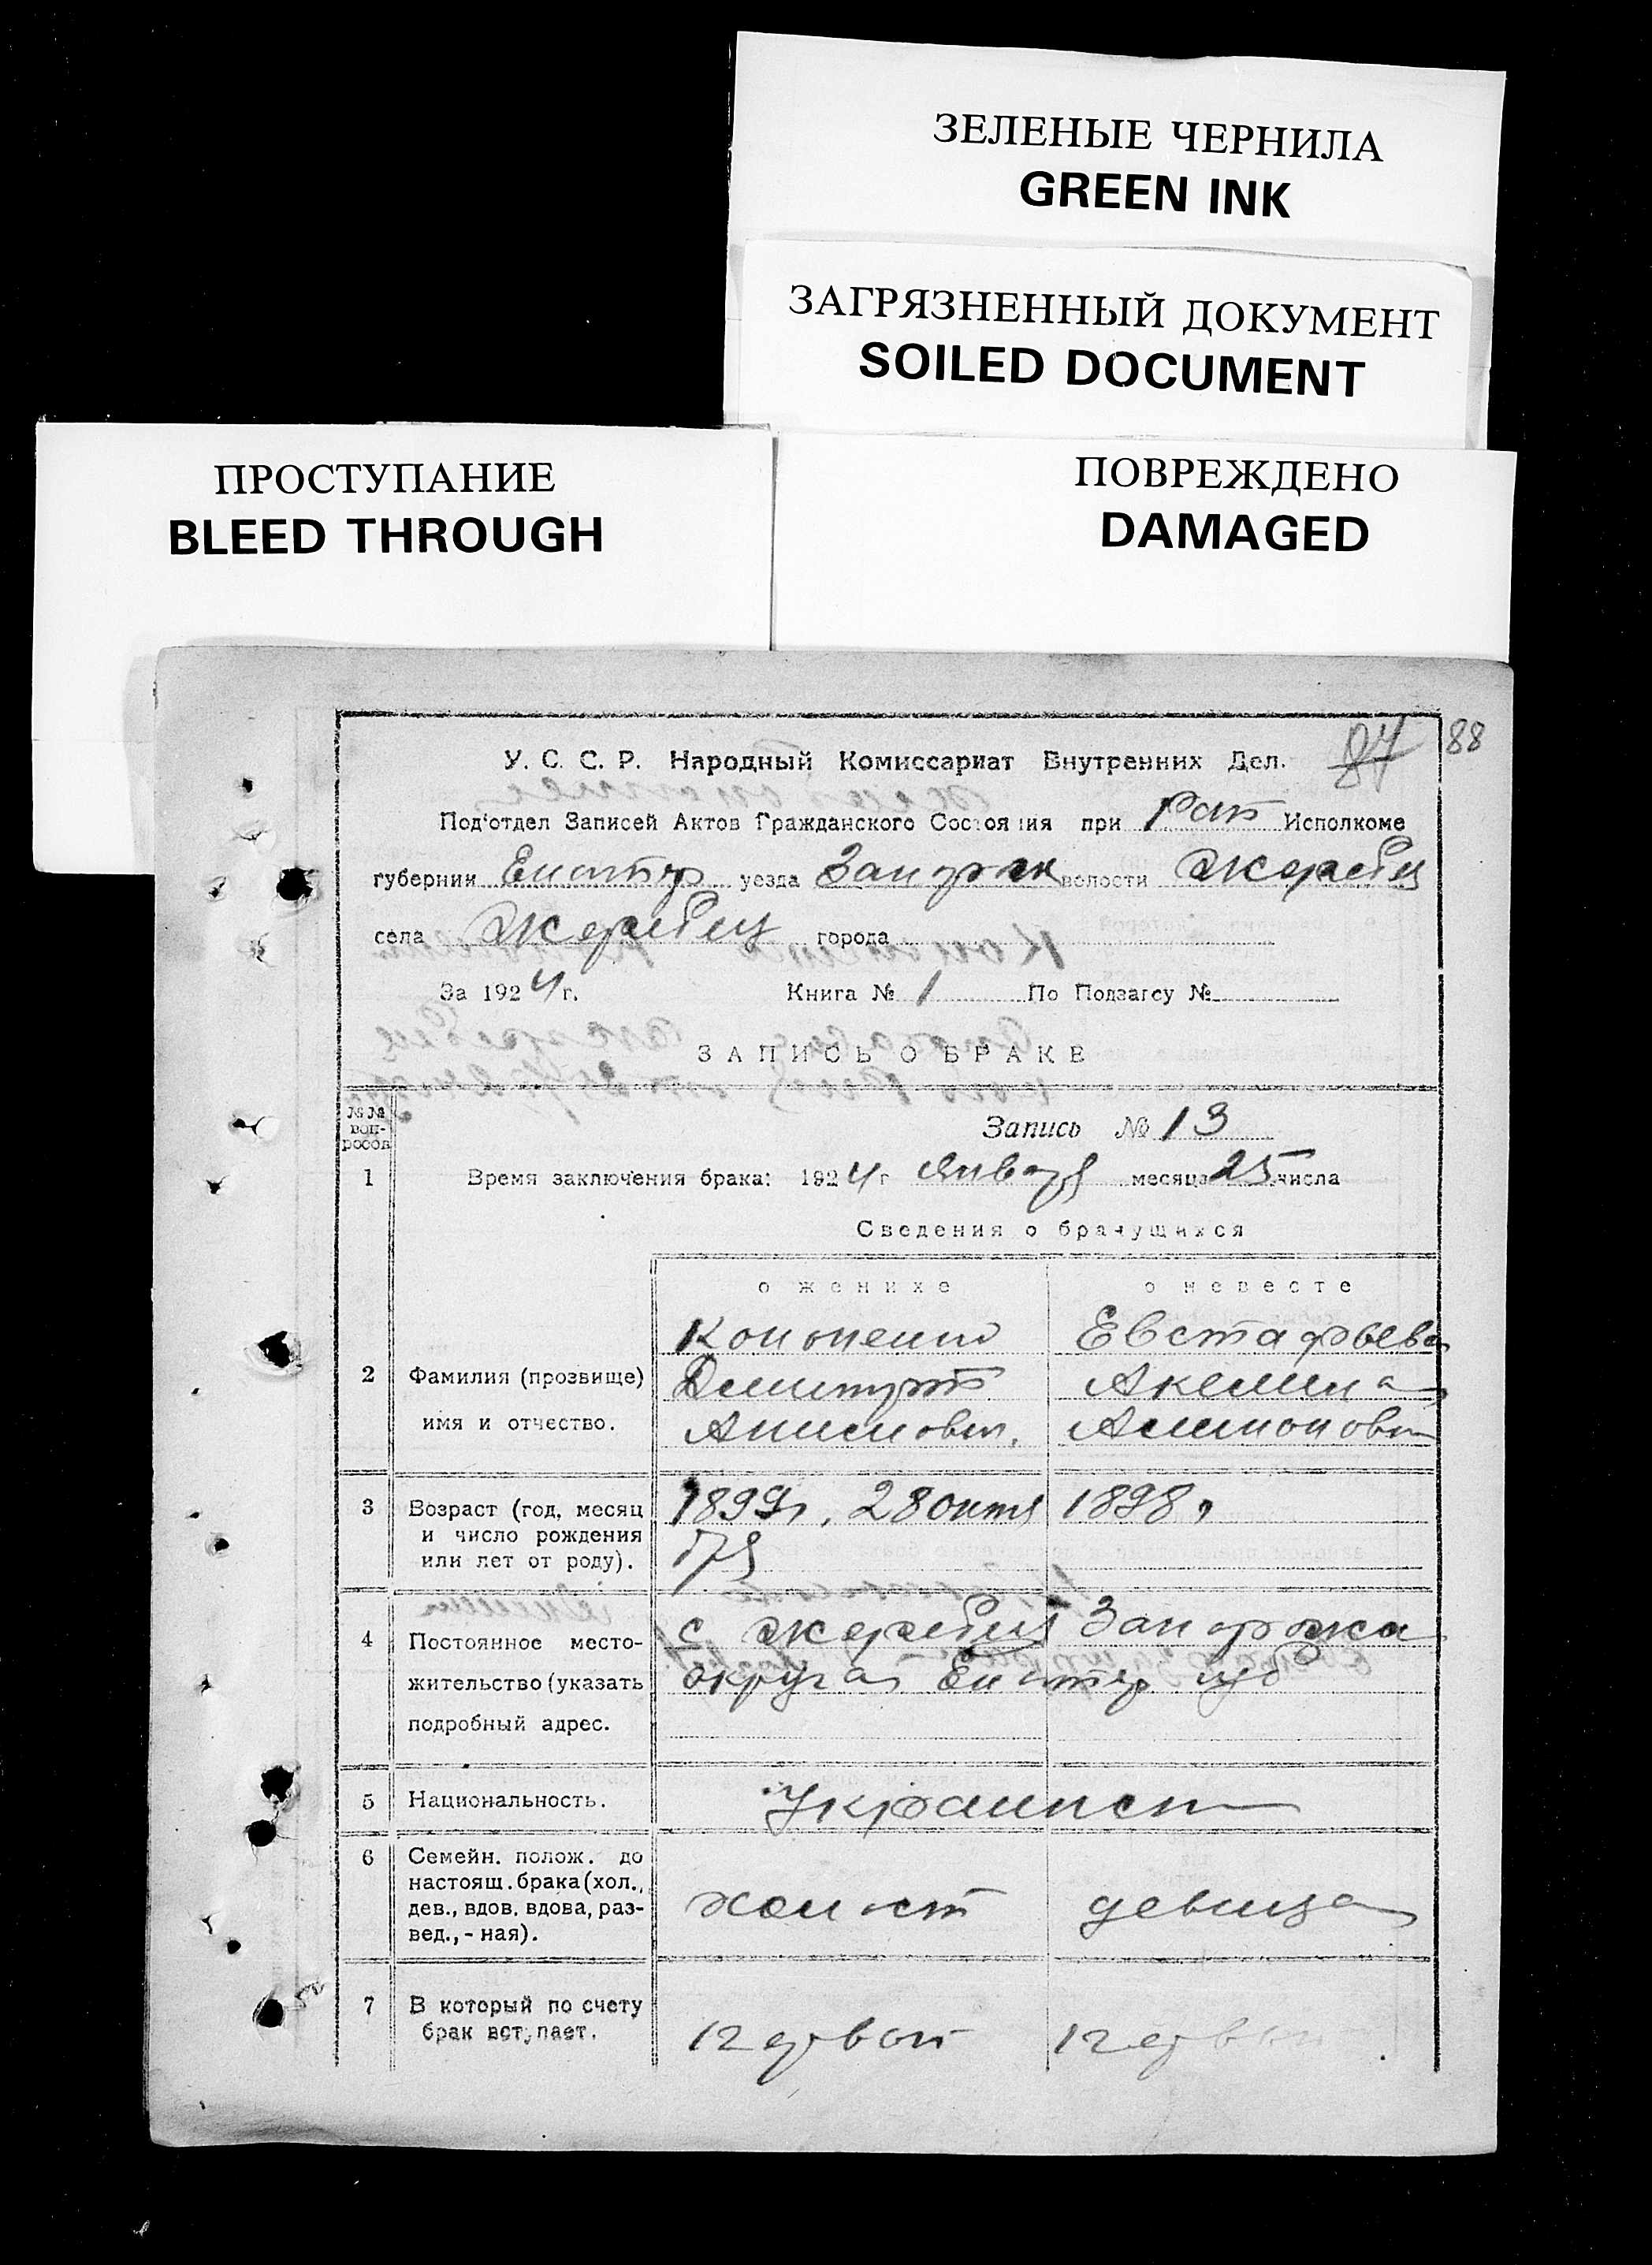 ЗЕЛЕНЫЕ ЧЕРНИЛА
GREEN INK
ЗАГРЯЗНЕННЫЙ ДОКУМЕНТ
SOILED DOCUMENT
ПРОСТУПАНИЕ
BLEED THROUGH
ПОВРЕЖДЕНО
DAMAGED
87 88
У. С. С. Р. Народный Комиссариат Внутренних Дел.
Под'отдел Записей Актов Гражданского Состояния при Рай Исполкоме
губернии Екатер уезда Запорож волости Жеребец
села Жеребец города
За 1924 г. Книга № 1 По Подзагсу №
ЗАПИСЬ О БРАКЕ
№№ вопросов
Запись № 13
1 Время заключения брака: 1924 г Января месяца 25 числа
Сведения о брачущихся
о женихе о невесте
Кононенко Евстафьева
2 Фамилия (прозвище) Дмитрий Акелина
имя и отчество. Анисимович.
3 Возраст (год, месяц 1899 г. 28 октя 1898 г
и число рождения бря
или лет от роду).
4 Постоянное место- с Жеребец Запорожск
жительство (указать округа Екатер губ
подробный адрес.
5 Национальность. Украинск
6 Семейн. полож. до
настоящ. брака (хол.,
дев., вдов. вдова, раз- холост девица
вед., - ная).
7 В который по счету
брак вступает. 1 первой 1 первой